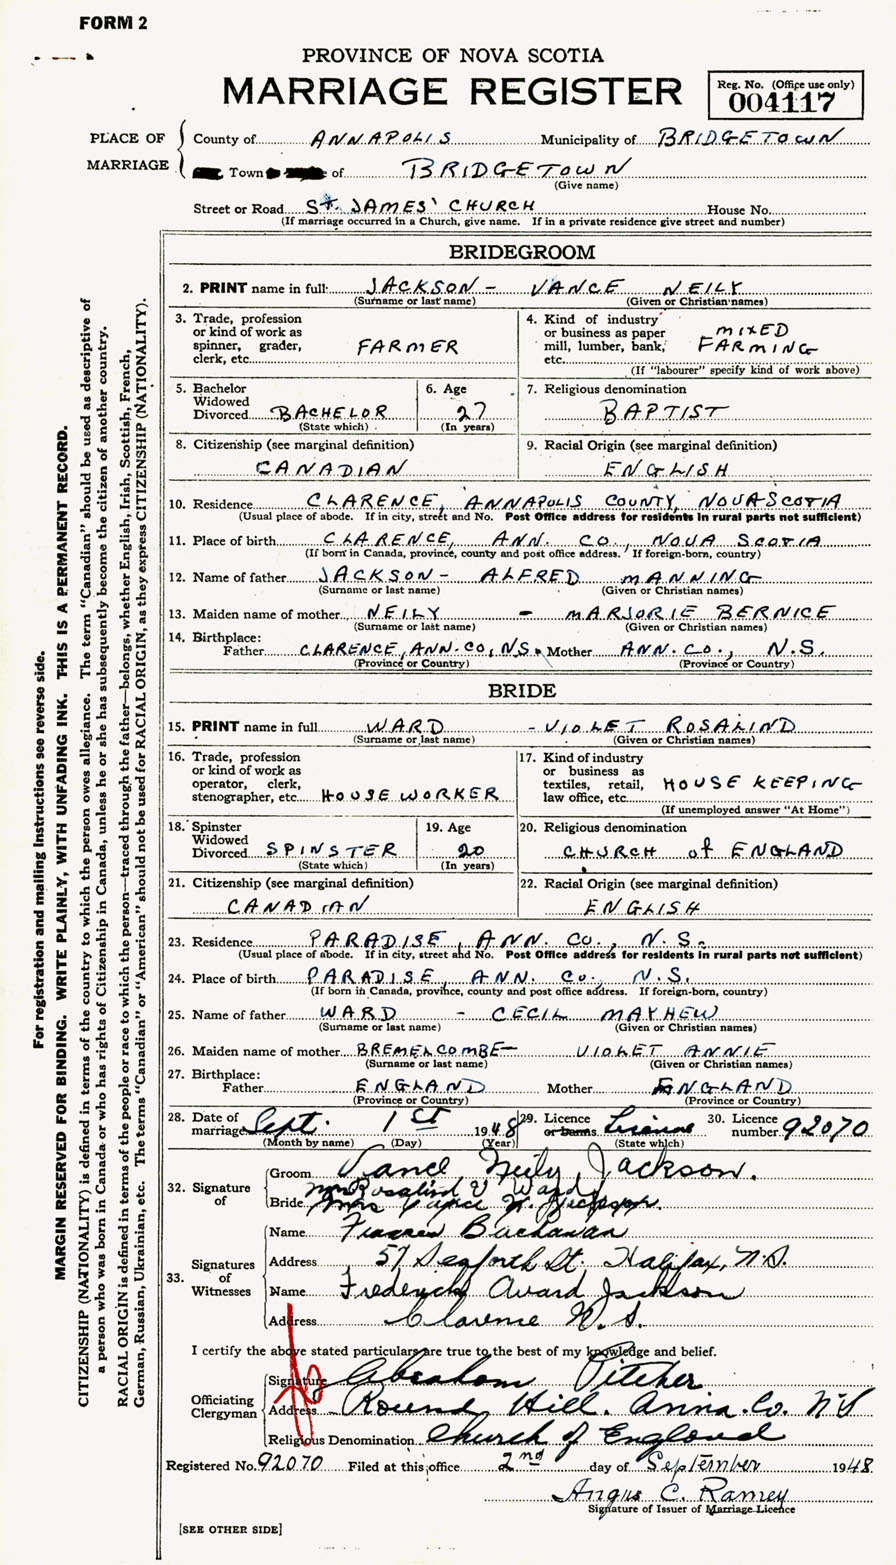 FORM 2
PROVINCE OF NOVA SCOTIA
MARRIAGE REGISTER
Reg. No. (Office use only)
004117
PLACE OF MARRIAGE
County of ANNAPOLIS Municipality of BRIDGETOWN
Town of BRIDGETOWN
(Give name)
Street or Road St. JAMES' CHURCH House No.
(If marriage occurred in a Church, give name. If in a private residence give street and number)
BRIDEGROOM
2. PRINT name in full JACKSON - VANCE NEILY
(Surname or last name) (Given or Christian names)
3. Trade, profession
or kind of work as
spinner, grader,
clerk, etc. FARMER
4. Kind of industry
or business as paper
mill, lumber, bank,
etc. MIXED
FARMING
(If "labourer" specify kind of work above)
5. Bachelor
Widowed
Divorced BACHELOR
(State which)
6. Age
27
(In years)
7. Religious denomination
BAPTIST
8. Citizenship (see marginal definition)
CANADIAN
9. Racial Origin (see marginal definition)
ENGLISH
10. Residence CLARENCE, ANNAPOLIS COUNTY, NOVA SCOTIA
(Usual place of abode. If in city, street and No. Post Office address for residents in rural parts not sufficient)
11. Place of birth CLARENCE, ANN. CO., NOVA SCOTIA
(If born in Canada, province, county and post office address. If foreign-born, country)
12. Name of father JACKSON - ALFRED MANNING
(Surname or last name) (Given or Christian names)
13. Maiden name of mother NEILY - MARJORIE BERNICE
(Surname or last name) (Given or Christian names)
14. Birthplace:
Father CLARENCE, ANN. CO, N.S. Mother ANN. CO., N.S.
(Province or Country) (Province or Country)
BRIDE
15. PRINT name in full WARD - VIOLET ROSALIND
(Surname or last name) (Given or Christian names)
16. Trade, profession
or kind of work as
operator, clerk,
stenographer, etc. HOUSE WORKER
17. Kind of industry
or business as
textiles, retail,
law office, etc. HOUSE KEEPING
(If unemployed answer "At Home")
18. Spinster
Widowed
Divorced SPINSTER
(State which)
19. Age
20
(In years)
20. Religious denomination
CHURCH of ENGLAND
21. Citizenship (see marginal definition)
CANADIAN
22. Racial Origin (see marginal definition)
ENGLISH
23. Residence PARADISE, ANN. CO., N.S.
(Usual place of abode. If in city, street and No. Post Office address for residents in rural parts not sufficient)
24. Place of birth PARADISE, ANN. Co., N.S.
(If born in Canada, province, county and post office address. If foreign-born, country)
25. Name of father WARD - CECIL MAYHEW
(Surname or last name) (Given or Christian names)
26. Maiden name of mother BREMELCOMBE - VIOLET ANNIE
(Surname or last name) (Given or Christian names)
27. Birthplace:
Father ENGLAND Mother ENGLAND
(Province or Country) (Province or Country)
28. Date of
marriage Sept. 1st 1948
(Month by name) (Day) (Year)
29. Licence
or banns License
(State which)
30. Licence
number 92070
32. Signature of
Groom Vance Neily Jackson.
Bride Mrs Rosalind V. Ward
Mrs Vance N. Jackson.
33. Signatures of Witnesses
Name Buchanan
Address 57 Seaforth St. Halifax, N.S.
Name Frederick Avard Jackson
Address Clarence N.S.
I certify the above stated particulars are true to the best of my knowledge and belief.
Officiating Clergyman
Signature Abraham Pitcher
Address Round Hill. Anna. Co. N.S
Religious Denomination Church of England
Registered No. 92070 Filed at this office 2nd day of September 1948
Angus C. Ramey
Signature of Issuer of Marriage Licence
[SEE OTHER SIDE]
For registration and mailing instructions see reverse side.
MARGIN RESERVED FOR BINDING. WRITE PLAINLY, WITH UNFADING INK. THIS IS A PERMANENT RECORD.
CITIZENSHIP (NATIONALITY) is defined in terms of the country to which the person owes allegiance. The term "Canadian" should be used as descriptive of
a person who was born in Canada or who has rights of Citizenship in Canada, unless he or she has subsequently become the citizen of another country.
RACIAL ORIGIN is defined in terms of the people or race to which the person—traced through the father—belongs, whether English, Irish, Scottish, French,
German, Russian, Ukrainian, etc. The terms "Canadian" or "American" should not be used for RACIAL ORIGIN, as they express CITIZENSHIP (NATIONALITY).